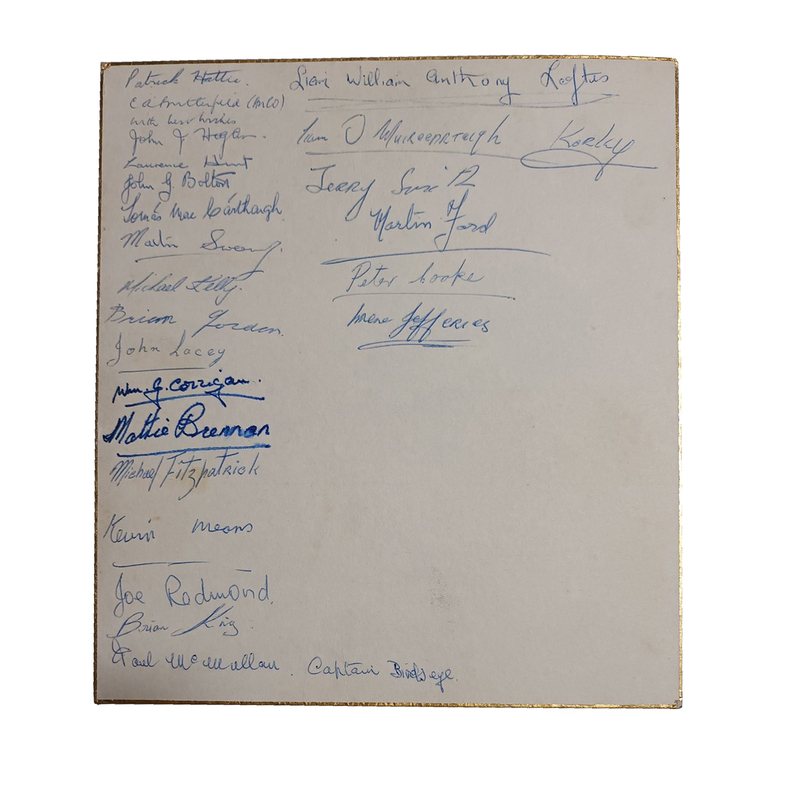 Patrick Hattie.
E A Butterfield (AnCO)
with best wishes
John J Hogan.
Laurence Hunt
John G. Bolton
Tomás Mac Cárthaigh
Martin
Michael Kelly.
Brian Gordon.
John Lacey
Wm. G. Corrigan.
Mattie Brennan
Michael Fitzpatrick
Kevin means
Joe Redmond.
Brian King.
Paul McMullan.
Captain Birdseye.
Liam William Anthony Loftus
Liam O Muireadhaigh
Jerry
Martin Ford
Peter Cooke
Irene Jefferies